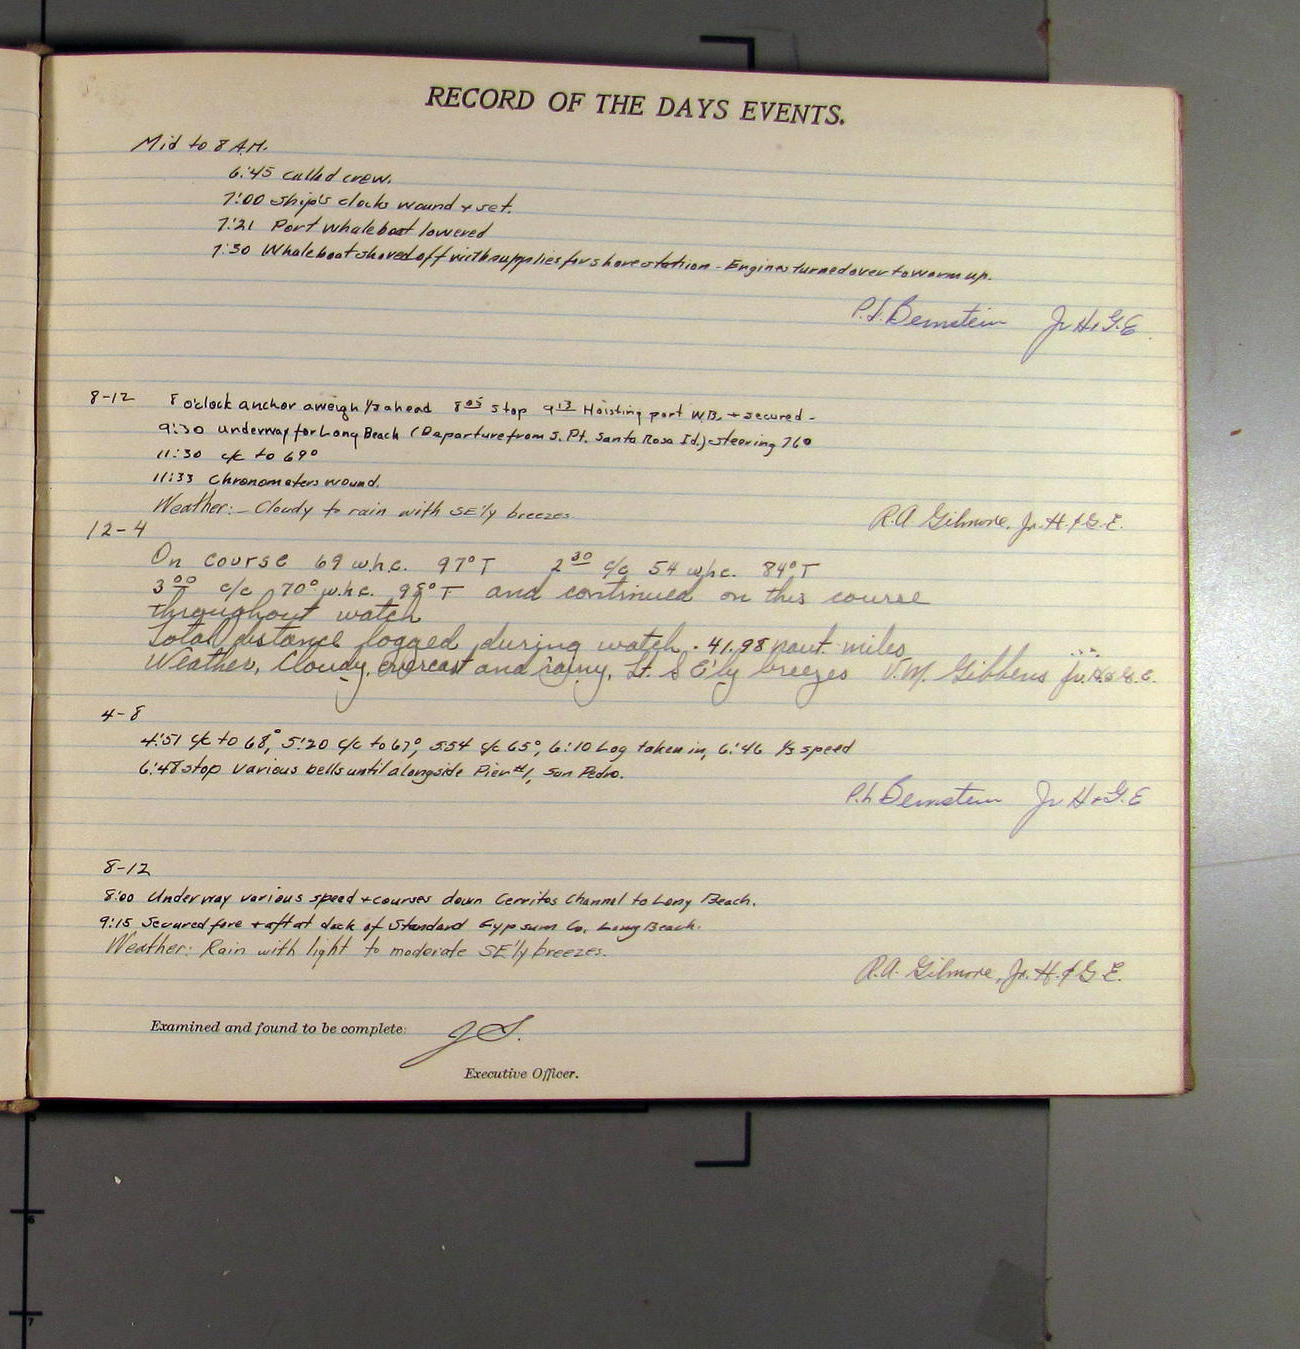 RECORD OF THE DAYS EVENTS.
Mid to 8 A.M.
6:45 called crew.
7:00 ship's clocks wound + set.
7:21 Port whaleboat lowered
7:30 Whaleboat shoved off with supplies for shore station - Engines turned over to warm up.
P.L. Bernstein Jr H+G.E.
8-12 8 o'clock anchor aweigh 1/3 ahead 8 05 stop 9 13 Hoisting port W.B. + secured -
9:30 underway for Long Beach (Departure from S. Pt. Santa Rosa Id.) steering 76°
11:30 c/c to 69°
11:33 Chronometers wound.
Weather:- Cloudy to rain with SE'ly breezes.
R.A. Gilmore, Jr. H. & G.E.
12-4
On course 69 w.h.c. 97° T 2 30 c/c 54 w.h.c. 84° T
3 00 c/c 70° w.h.c. 98° T and continued on this course
throughout watch
Total distance logged during watch. 41.98 naut. miles
Weather, Cloudy, overcast and rainy, Lt. S E'ly breezes V.M. Gibbens Jr. H. & G. E.
4-8
4:51 c/c to 68°, 5:20 c/c to 67°, 5:54 c/c 65°, 6:10 Log taken in, 6:46 1/3 speed
6:48 stop various bells until alongside Pier #1, San Pedro.
P.L. Bernstein Jr H+G.E
8-12
8:00 Underway various speed + courses down Cerritos Channel to Long Beach.
9:15 Secured fore + aft at dock of Standard Gypsum Co. Long Beach.
Weather: Rain with light to moderate SE'ly breezes.
R.A. Gilmore, Jr. H. & G.E.
Examined and found to be complete: J S.
Executive Officer.
6
7